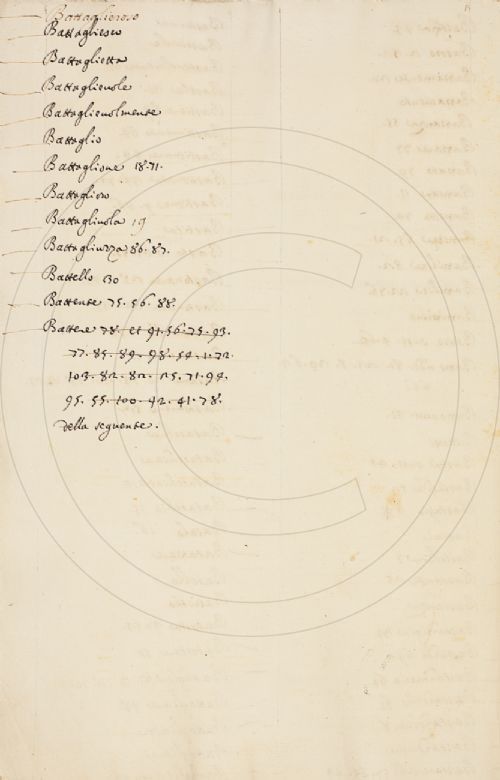 Battaglieroso
Battagliesco
Battaglietta
Battaglievole
Battaglievolmente
Battaglio
Battaglione 18.71.
Battagliero
Battagliuola 19
Battagliuzza 86.87.
Battello 130
Battente 75.56.88.
Battere 78. et 91.56.75.93.
77.85.89.98.54.1.72.
103.82.82.125.71.94.
95.55.100.42.41.78.
della seguente.
©